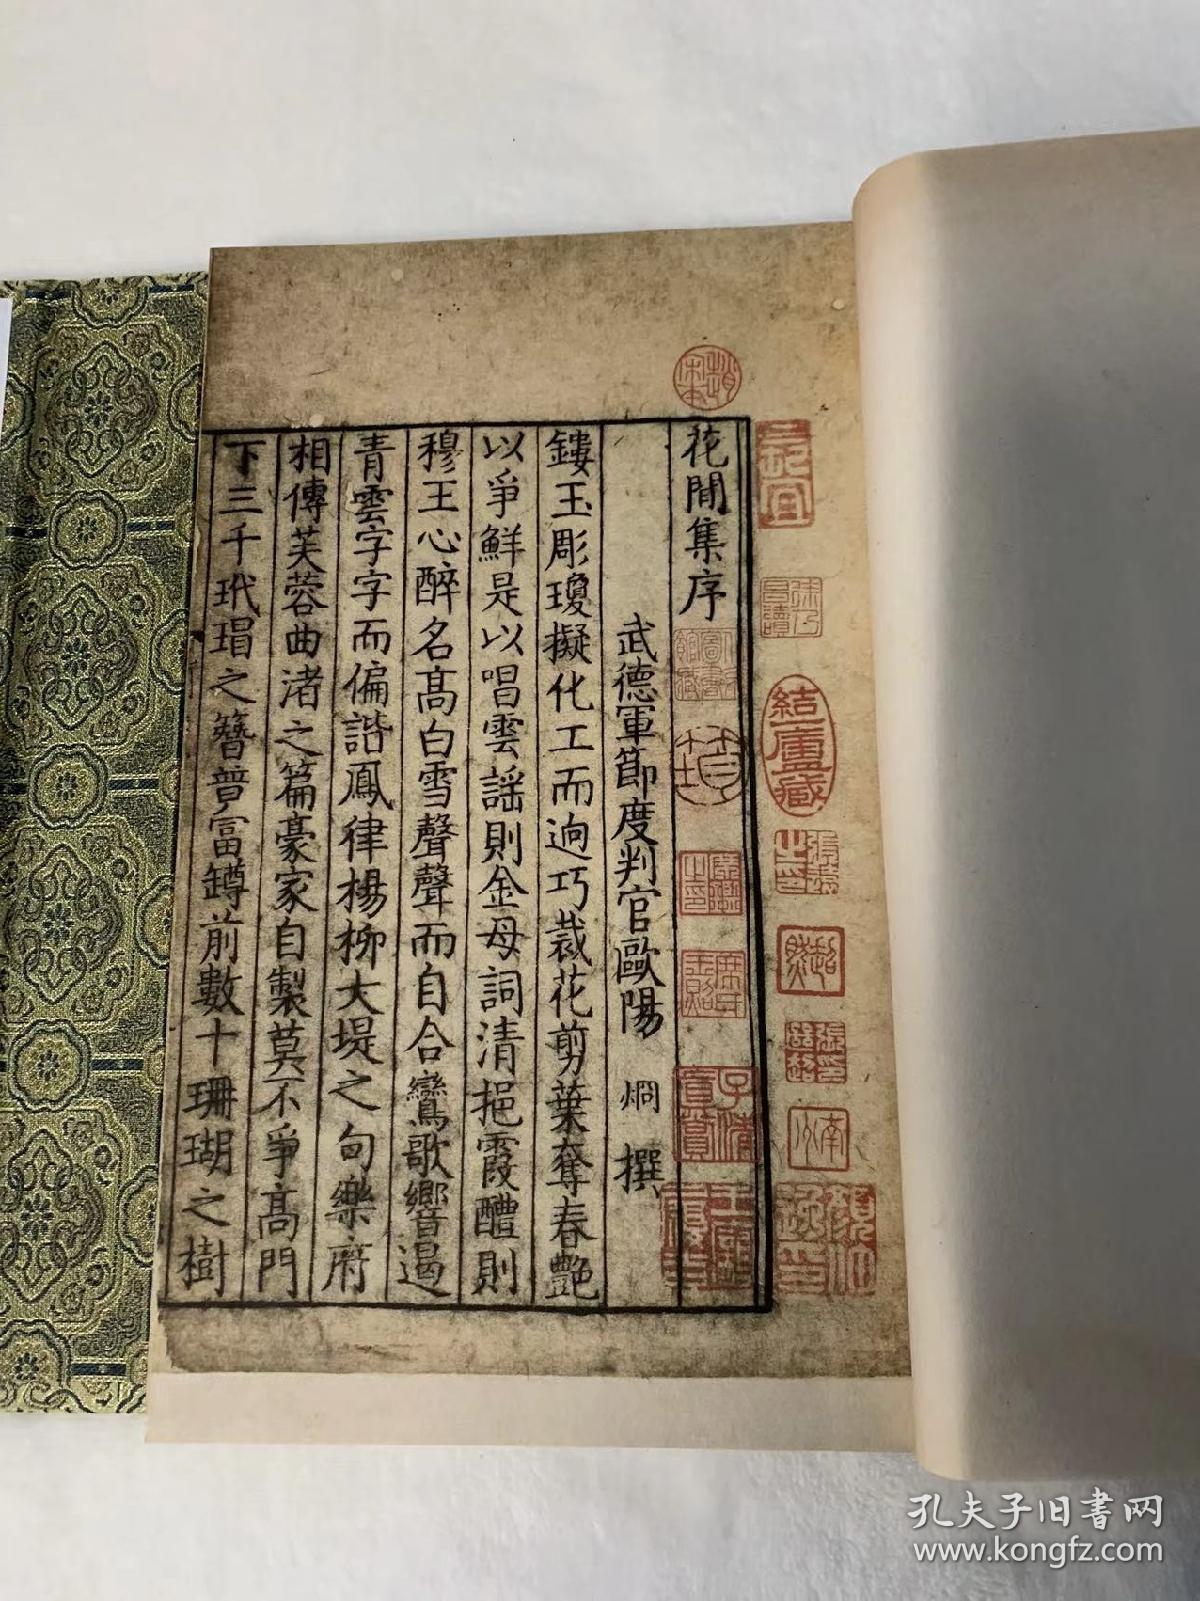 花間集序
武德軍節度判官歐陽 烱 撰
鏤玉彫瓊擬化工而逈巧裁花剪葉奪春艷
以爭鮮是以唱雲謡則金母詞清挹霞醴則
穆王心醉名髙白雪聲聲而自合鸞歌響遏
青雲字字而偏諧鳳律楊栁大堤之句樂府
相傳芙蓉曲渚之篇豪家自製莫不爭髙門
下三千玳瑁之簪普冨罇前數十珊瑚之樹
結一廬藏
孔夫子旧书网
www.kongfz.com